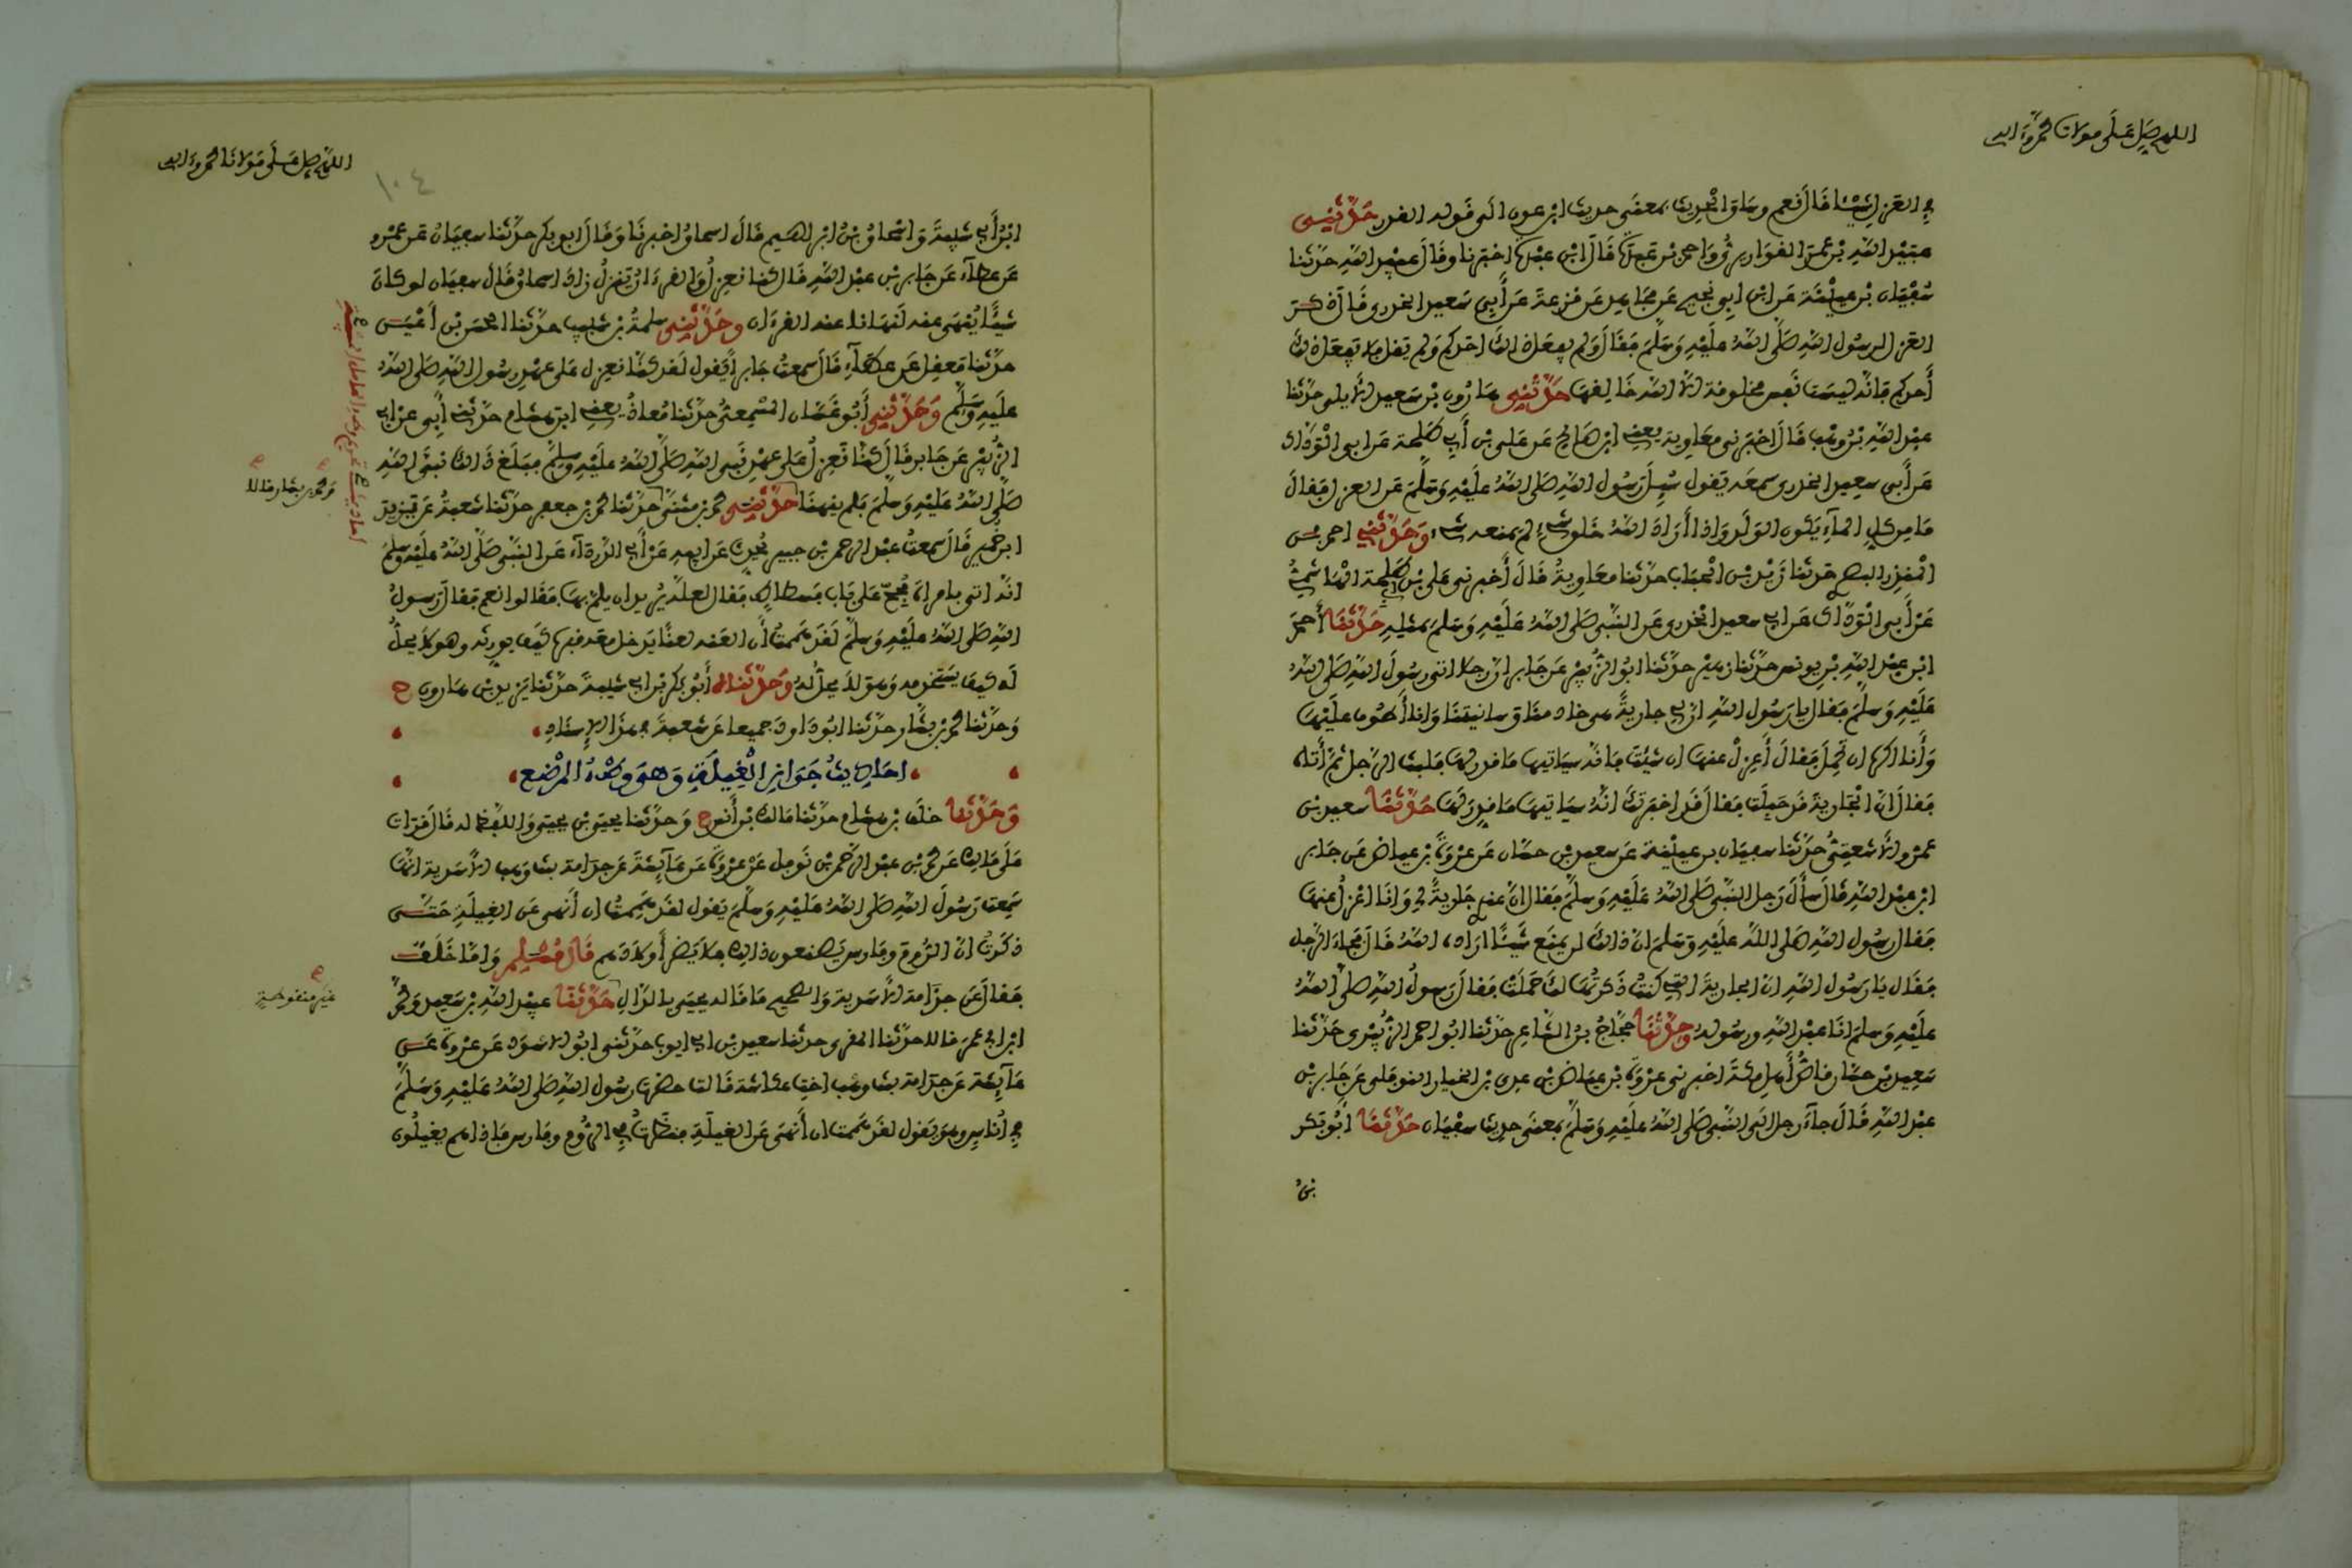 اللهم صل على مولانا محمد وءاله
في العزل شيئا قال نعم وساق الحديث بمعنى حديث ابن عون الى قوله القدر حدثني
عبيد الله بن عمر القواريري واحمد بن عبدة قال ابن عبدة اخبرنا وقال عبيد الله حدثنا
سفيان بن عيينة عن ابن ابي نجيح عن مجاهد عن قزعة عن أبي سعيد الخدري قال ذكر
العزل لرسول الله صلى الله عليه وسلم فقال ولم يفعل ذلك احدكم ولم يقل فلا يفعل ذلك
أحدكم فانه ليست نفس مخلوقة الا الله خالقها حدثني هارون بن سعيد الايلي حدثنا
عبد الله بن وهب قال اخبرني معاوية يعني ابن صالح عن علي بن أبي طلحة عن ابي الوداك
عن أبي سعيد الخدري سمعه يقول سئل رسول الله صلى الله عليه وسلم عن العزل فقال
ما من كل الماء يكون الولد واذا أراد الله خلق شيء لم يمنعه شيء وحدثني احمد بن
المنذر البصري حدثنا زيد بن الحباب حدثنا معاوية قال أخبرني علي بن ابي طلحة الهاشمي
عن أبي الوداك عن ابي سعيد الخدري عن النبي صلى الله عليه وسلم بمثله حدثنا أحمد
ابن عبد الله بن يونس حدثنا زهير حدثنا ابو الزبير عن جابر ان رجلا اتى رسول الله صلى الله
عليه وسلم فقال يا رسول الله ان لي جارية هي خادمتنا وسانيتنا وانا أطوف عليها
وأنا اكره ان تحمل فقال أعزل عنها ان شئت فانه سياتيها ما قدر لها فلبث الرجل ثم أتاه
فقال ان الجارية قد حبلت فقال قد اخبرتك انه سياتيها ما قدر لها حدثنا سعيد بن
عمرو الاشعثي حدثنا سفيان بن عيينة عن سعيد بن حسان عن عروة بن عياض عن جابر
ابن عبد الله قال سأل رجل النبي صلى الله عليه وسلم فقال ان عندي جارية لي وانا اعزل عنها
فقال رسول الله صلى الله عليه وسلم ان ذلك لن يمنع شيئا اراده الله قال فجاء الرجل
فقال يا رسول الله ان الجارية التي كنت ذكرتها لك حملت فقال رسول الله صلى الله
عليه وسلم انا عبد الله ورسوله وحدثنا حجاج بن الشاعر حدثنا ابو احمد الزبيري حدثنا
سعيد بن حسان قاص أهل مكة اخبرني عروة بن عياض بن عدي بن الخيار النوفلي عن جابر بن
عبد الله قال جاء رجل الى النبي صلى الله عليه وسلم بمعنى حديث سفيان حدثنا ابو بكر
بن
اللهم صل على مولانا محمد وءاله
١٠٤
ابن أبي شيبة واسحاق بن ابراهيم قال اسحاق اخبرنا وقال ابو بكر حدثنا سفيان عن عمرو
عن عطاء عن جابر بن عبد الله قال كنا نعزل والقرءان ينزل زاد اسحاق قال سفيان لو كان
شيئا ينهى عنه لنهانا عنه القرءان وحدثني سلمة بن شبيب حدثنا الحسن بن أعين
حدثنا معقل عن عطاء قال سمعت جابرا يقول لقد كنا نعزل على عهد رسول الله صلى الله
عليه وسلم وحدثني أبو غسان المسمعي حدثنا معاذ يعني ابن هشام حدثني أبي عن ابي
الزبير عن جابر قال كنا نعزل على عهد نبي الله صلى الله عليه وسلم فبلغ ذلك نبي الله
صلى الله عليه وسلم فلم ينهنا حدثني محمد بن مثنى حدثنا محمد بن جعفر حدثنا شعبة عن يزيد
ومحمد بن بشار قالا
ابن خمير قال سمعت عبد الرحمن بن جبير يحدث عن ابيه عن أبي الدرداء عن النبي صلى الله عليه وسلم
انه اتى بامراة مجح على باب فسطاط فقال لعله يريد ان يلم بها فقالوا نعم فقال رسول
الله صلى الله عليه وسلم لقد هممت أن العنه لعنا يدخل معه قبره كيف يورثه وهو لا يحل
له كيف يستخدمه وهو لا يحل له وحدثناه أبو بكر بن ابي شيبة حدثنا يزيد بن هارون ح
وحدثنا محمد بن بشار حدثنا ابو داود جميعا عن شعبة في هذا الاسناد
احاديث جواز الغيلة وهي وطء المرضع
وحدثنا خلف بن هشام حدثنا مالك بن أنس ح وحدثنا يحيى بن يحيى واللفظ له قال قرات
على مالك عن محمد بن عبد الرحمن بن نوفل عن عروة عن عائشة عن جدامة بنت وهب الاسدية انها
سمعت رسول الله صلى الله عليه وسلم يقول لقد هممت ان أنهى عن الغيلة حتى
ذكرت ان الروم وفارس يصنعون ذلك فلا يضر أولادهم قال مسلم واما خلف
فقال عن جذامة الاسدية والصحيح ما قاله يحيى بالدال حدثنا عبيد الله بن سعيد ومحمد
غير منقوطة
ابن ابي عمر قالا حدثنا المقري حدثنا سعيد بن ابي ايوب حدثني ابو الاسود عن عروة عن
عائشة عن جدامة بنت وهب اخت عكاشة قالت حضرت رسول الله صلى الله عليه وسلم
في أناس وهو يقول لقد هممت ان أنهى عن الغيلة فنظرت في الروم وفارس فاذا هم يغيلون